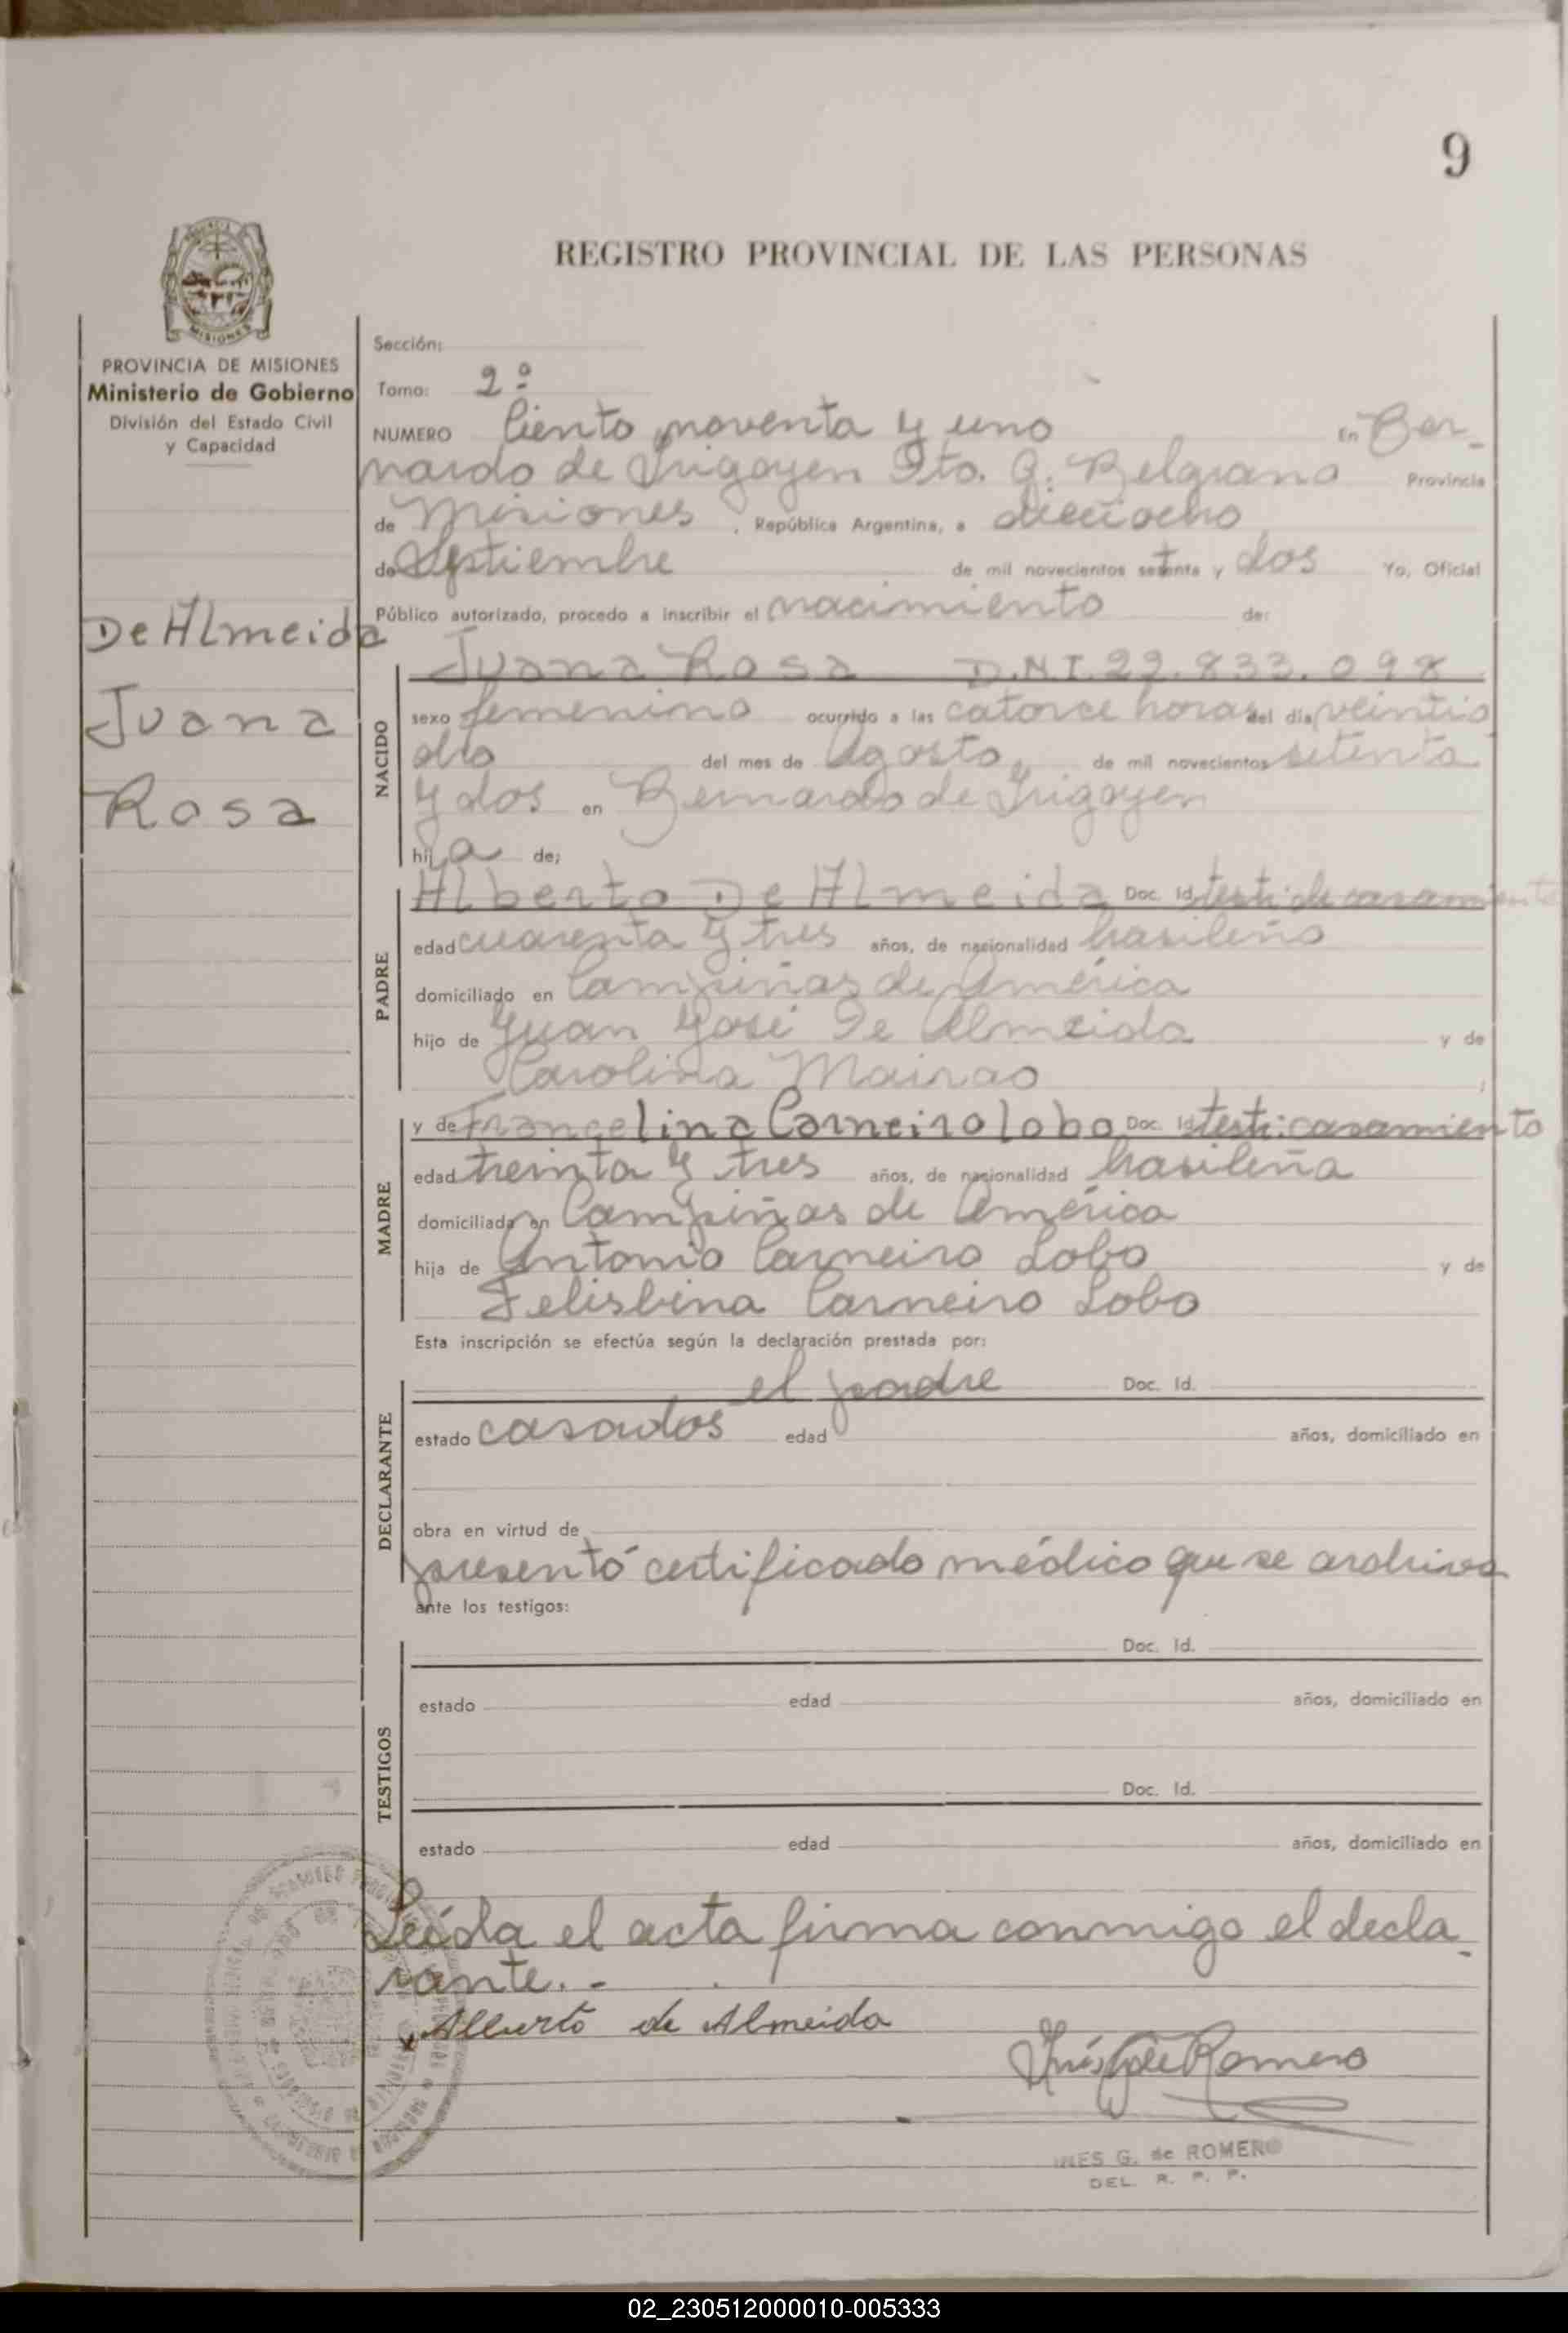 9
REGISTRO PROVINCIAL DE LAS PERSONAS
MISIONES
PROVINCIA DE MISIONES
Ministerio de Gobierno
División del Estado Civil
y Capacidad
De Almeida
Juana
Rosa
Sección:
Tomo: 2º
NUMERO Ciento noventa y uno En Ber-
nardo de Irigoyen Dto. G. Belgrano Provincia
de Misiones, República Argentina, a dieciocho
de Septiembre de mil novecientos setenta y dos Yo, Oficial
Público autorizado, procedo a inscribir el nacimiento de:
NACIDO
Juana Rosa D.N.I. 22.833.098
sexo femenino ocurrido a las catorce horas del día veintio
cho del mes de Agosto, de mil novecientos setenta
y dos en Bernardo de Irigoyen
hija de;
PADRE
Alberto De Almeida Doc. Id. testi: de casamiento
edad cuarenta y tres años, de nacionalidad brasileño
domiciliado en Campiñas de América
hijo de Juan José De Almeida y de
Carolina Mairao;
MADRE
y de Francelina Carneiro lobo Doc. Id. testi: casamiento
edad treinta y tres años, de nacionalidad brasileña
domiciliada en Campiñas de América
hija de Antonio Carneiro Lobo y de
Felisbina Carneiro Lobo
Esta inscripción se efectúa según la declaración prestada por:
DECLARANTE
el padre Doc. Id.
estado casados edad años, domiciliado en
obra en virtud de
presentó certificado médico que se archiva
ante los testigos:
TESTIGOS
Doc. Id.
estado edad años, domiciliado en
Doc. Id.
estado edad años, domiciliado en
Leída el acta firma conmigo el decla-
rante.-
Alberto de Almeida
Inés G de Romero
INES G. de ROMERO
DEL. R. P. P.
02_230512000010-005333